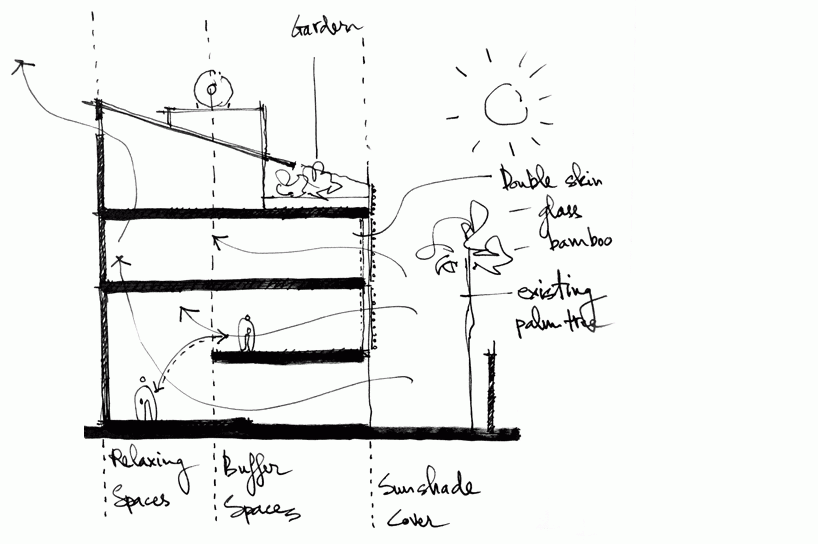 Garden
Double skin
glass
bamboo
existing
palm tree
Relaxing
Spaces
Buffer
Spaces
Sunshade
Cover